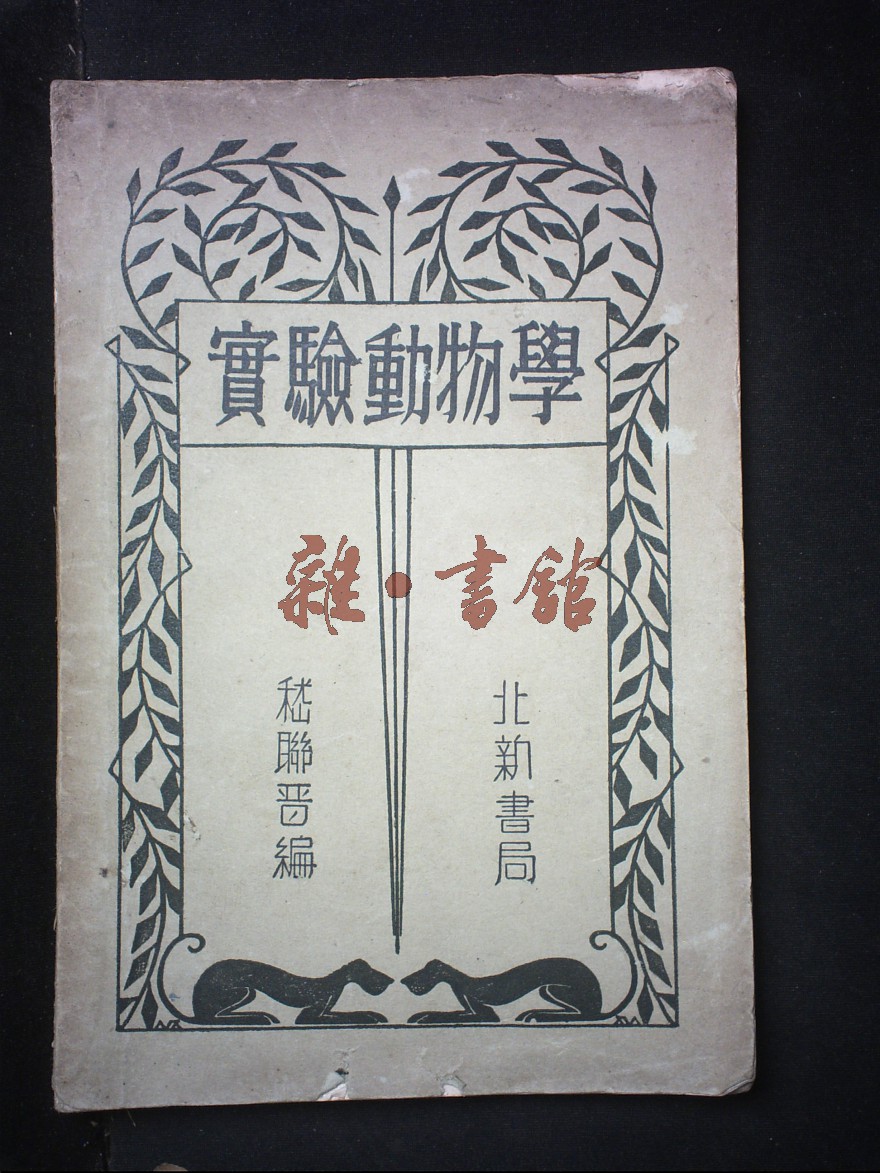 實驗動物學
雜·書館
北新書局
嵇聯晉編